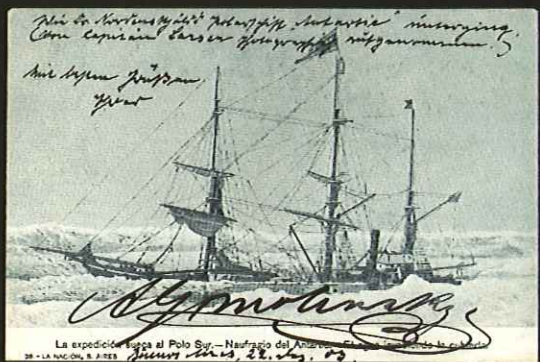 Wie Dr. Nordenskjölds Polarschiff "Antartic" unterging.
(von Capitän Larsen photographisch aufgenommen.)
Mit besten Grüßen
Ihr
La expedición sueca al Polo Sur.—Naufragio del
28 - LA NACIÓN, B. AIRES
Buenos Aires, 22. Dez. 03